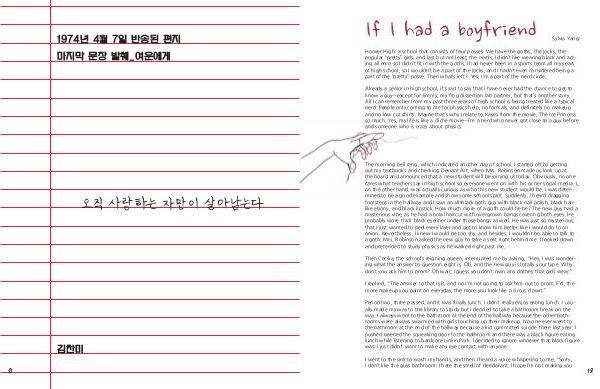 1974년 4월 7일 방송된 편지
마지막 문장 발췌_여운에게
오직 사랑하는 자만이 살아남는다
김찬미
If I had a boyfriend
Sylvia Yang
Hoover High: a school that consists of four posses. We have the goths, the jocks, the
popular "pretty" girls, and last but not least, the nerds. I didn't like wearing black and act-
ing all emo so I didn't fit in with the goths, I had never been in a sports team all my years
of high school, so I wouldn't be a part of the jocks, and I hadn't even considered being a
part of the "pretty" posse. Then what's left? Yes, I'm a part of the nerd circle.
Already a senior in high school, it's sad to say that I have never had the chance to get to
know a guy—except for Jimmy, my frog dissection lab partner, but that's another story.
All I can remember from my past three years of high school is being treated like a typical
nerd. People only coming to me for physics help, no formals, and definitely no makeup
and no low cut shirts. Maybe that's why I relate to Kasey from the movie, The Ice Princess
so much. Yes, my life is like a cliché movie—I'm a nerd who never got close to a guy before
and someone who is crazy about physics.
The morning bell rang, which indicated another day of school. I started off by getting
out my textbooks and checking Deviant Art, when Mrs. Robinson made us look up at
the board and announced that a new student will be joining us today. Obviously, no one
cares what teachers say in high school so everyone went on with his or her social media. I,
on the other hand, was actually curious as to who this new student would be. I was deter-
mined to be a good example and show some school spirit. Suddenly, I heard dragging
footsteps in the hallway and I saw an all-black goth guy with black nail polish, black hair
like ebony, and black lipstick. How much more of a goth could he be? The new guy had a
mysterious vibe, as he had a bowl haircut with overgrown bangs covering both eyes. He
probably wore thick black eyeliner under those bangs as well. He was just so mysterious,
that I just wanted to peel every layer and get to know him better like I would do to an
onion. Nevertheless, I knew I would be too shy, and besides, I wouldn't be able to talk to
a goth. Mrs. Robinson asked the new guy to take a seat right behind me. I looked down
and pretended to study physics as he walked right past me.
Then Cecilia, the school's reigning queen, interrupted me by asking, "Hey, I was wonder-
ing what the answer to question eight is. Oh, and the new guy is totally your type. Why
don't you ask him to prom? Oh wait, I guess you don't own any clothes that girls wear."
I replied, "The answer to that is B, and no I'm not going to ask him out to prom. FYI, the
more makeup you paint on everyday, the more you look like a circus clown."
Period two, three passed, and it was finally lunch. I didn't really enjoy eating lunch. I usu-
ally made my way to the library to study but I decided to take a bathroom break on the
way. I always went to the bathroom at the end of the hallway because the other bath-
rooms were always swarmed with girls touching up their makeup. No one ever went to
the bathroom at the end of the hallway because a kid committed suicide there last year. I
pushed opened the squeaking door to the bathroom and there was a black figure eating
lunch while listening to hardcore Linkin Park. I decided to ignore whoever that black figure
was. I just didn't want to make any eye contact with anyone.
I went to the sink to wash my hands, and then I heard a voice whispering to me, "Sorry,
I don't like the guys bathroom. I hate the smell of deodorant. I hope I'm not making you